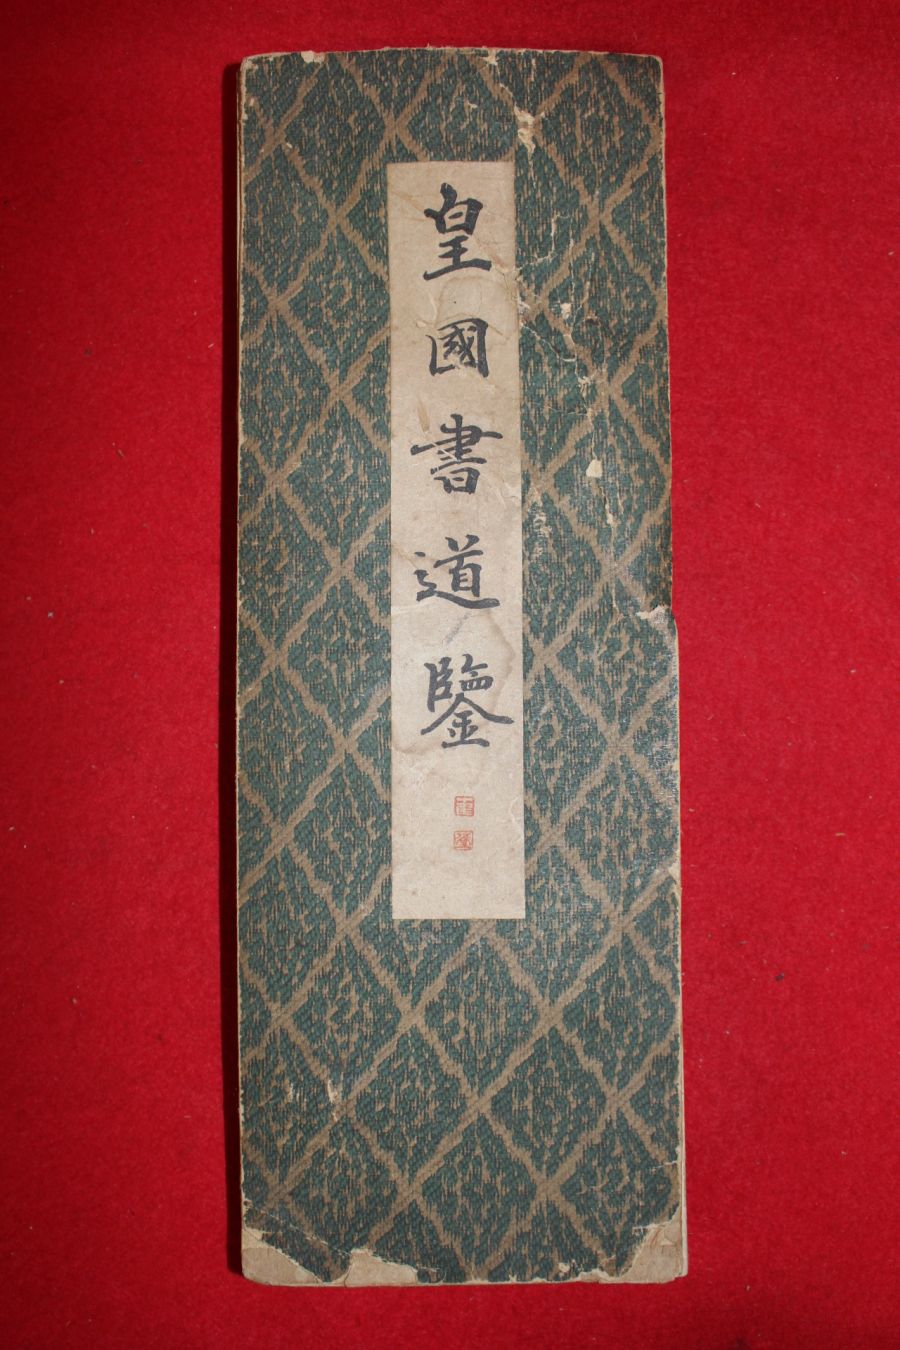 皇國書道鑒